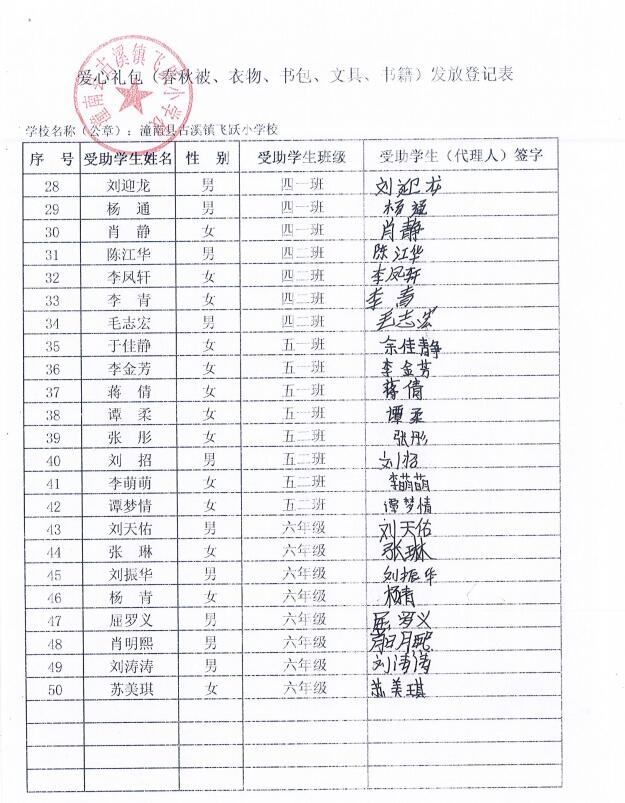 爱心礼包（春秋被、衣物、书包、文具、书籍）发放登记表
潼南县古溪镇飞跃小学校
学校名称（公章）：潼南县古溪镇飞跃小学校
序 号 受助学生姓名 性 别 受助学生班级 受助学生（代理人）签字
28 刘迎龙 男 四一班 刘迎龙
29 杨 通 男 四一班 杨通
30 肖 静 女 四一班 肖静
31 陈江华 男 四二班 陈江华
32 李凤轩 女 四二班 李凤轩
33 李 青 女 四二班 李青
34 毛志宏 男 四二班 毛志宏
35 于佳静 女 五一班 余佳静
36 李金芳 女 五一班 李金芳
37 蒋 倩 女 五一班 蒋倩
38 谭 柔 女 五一班 谭柔
39 张 彤 女 五二班 张彤
40 刘 招 男 五二班 刘招
41 李萌萌 女 五二班 李萌萌
42 谭梦情 女 五二班 谭梦情
43 刘天佑 男 六年级 刘天佑
44 张 琳 女 六年级 张琳
45 刘振华 男 六年级 刘振华
46 杨 青 女 六年级 杨青
47 屈罗义 男 六年级 屈罗义
48 肖明熙 男 六年级 肖明熙
49 刘涛涛 男 六年级 刘涛涛
50 苏美琪 女 六年级 苏美琪